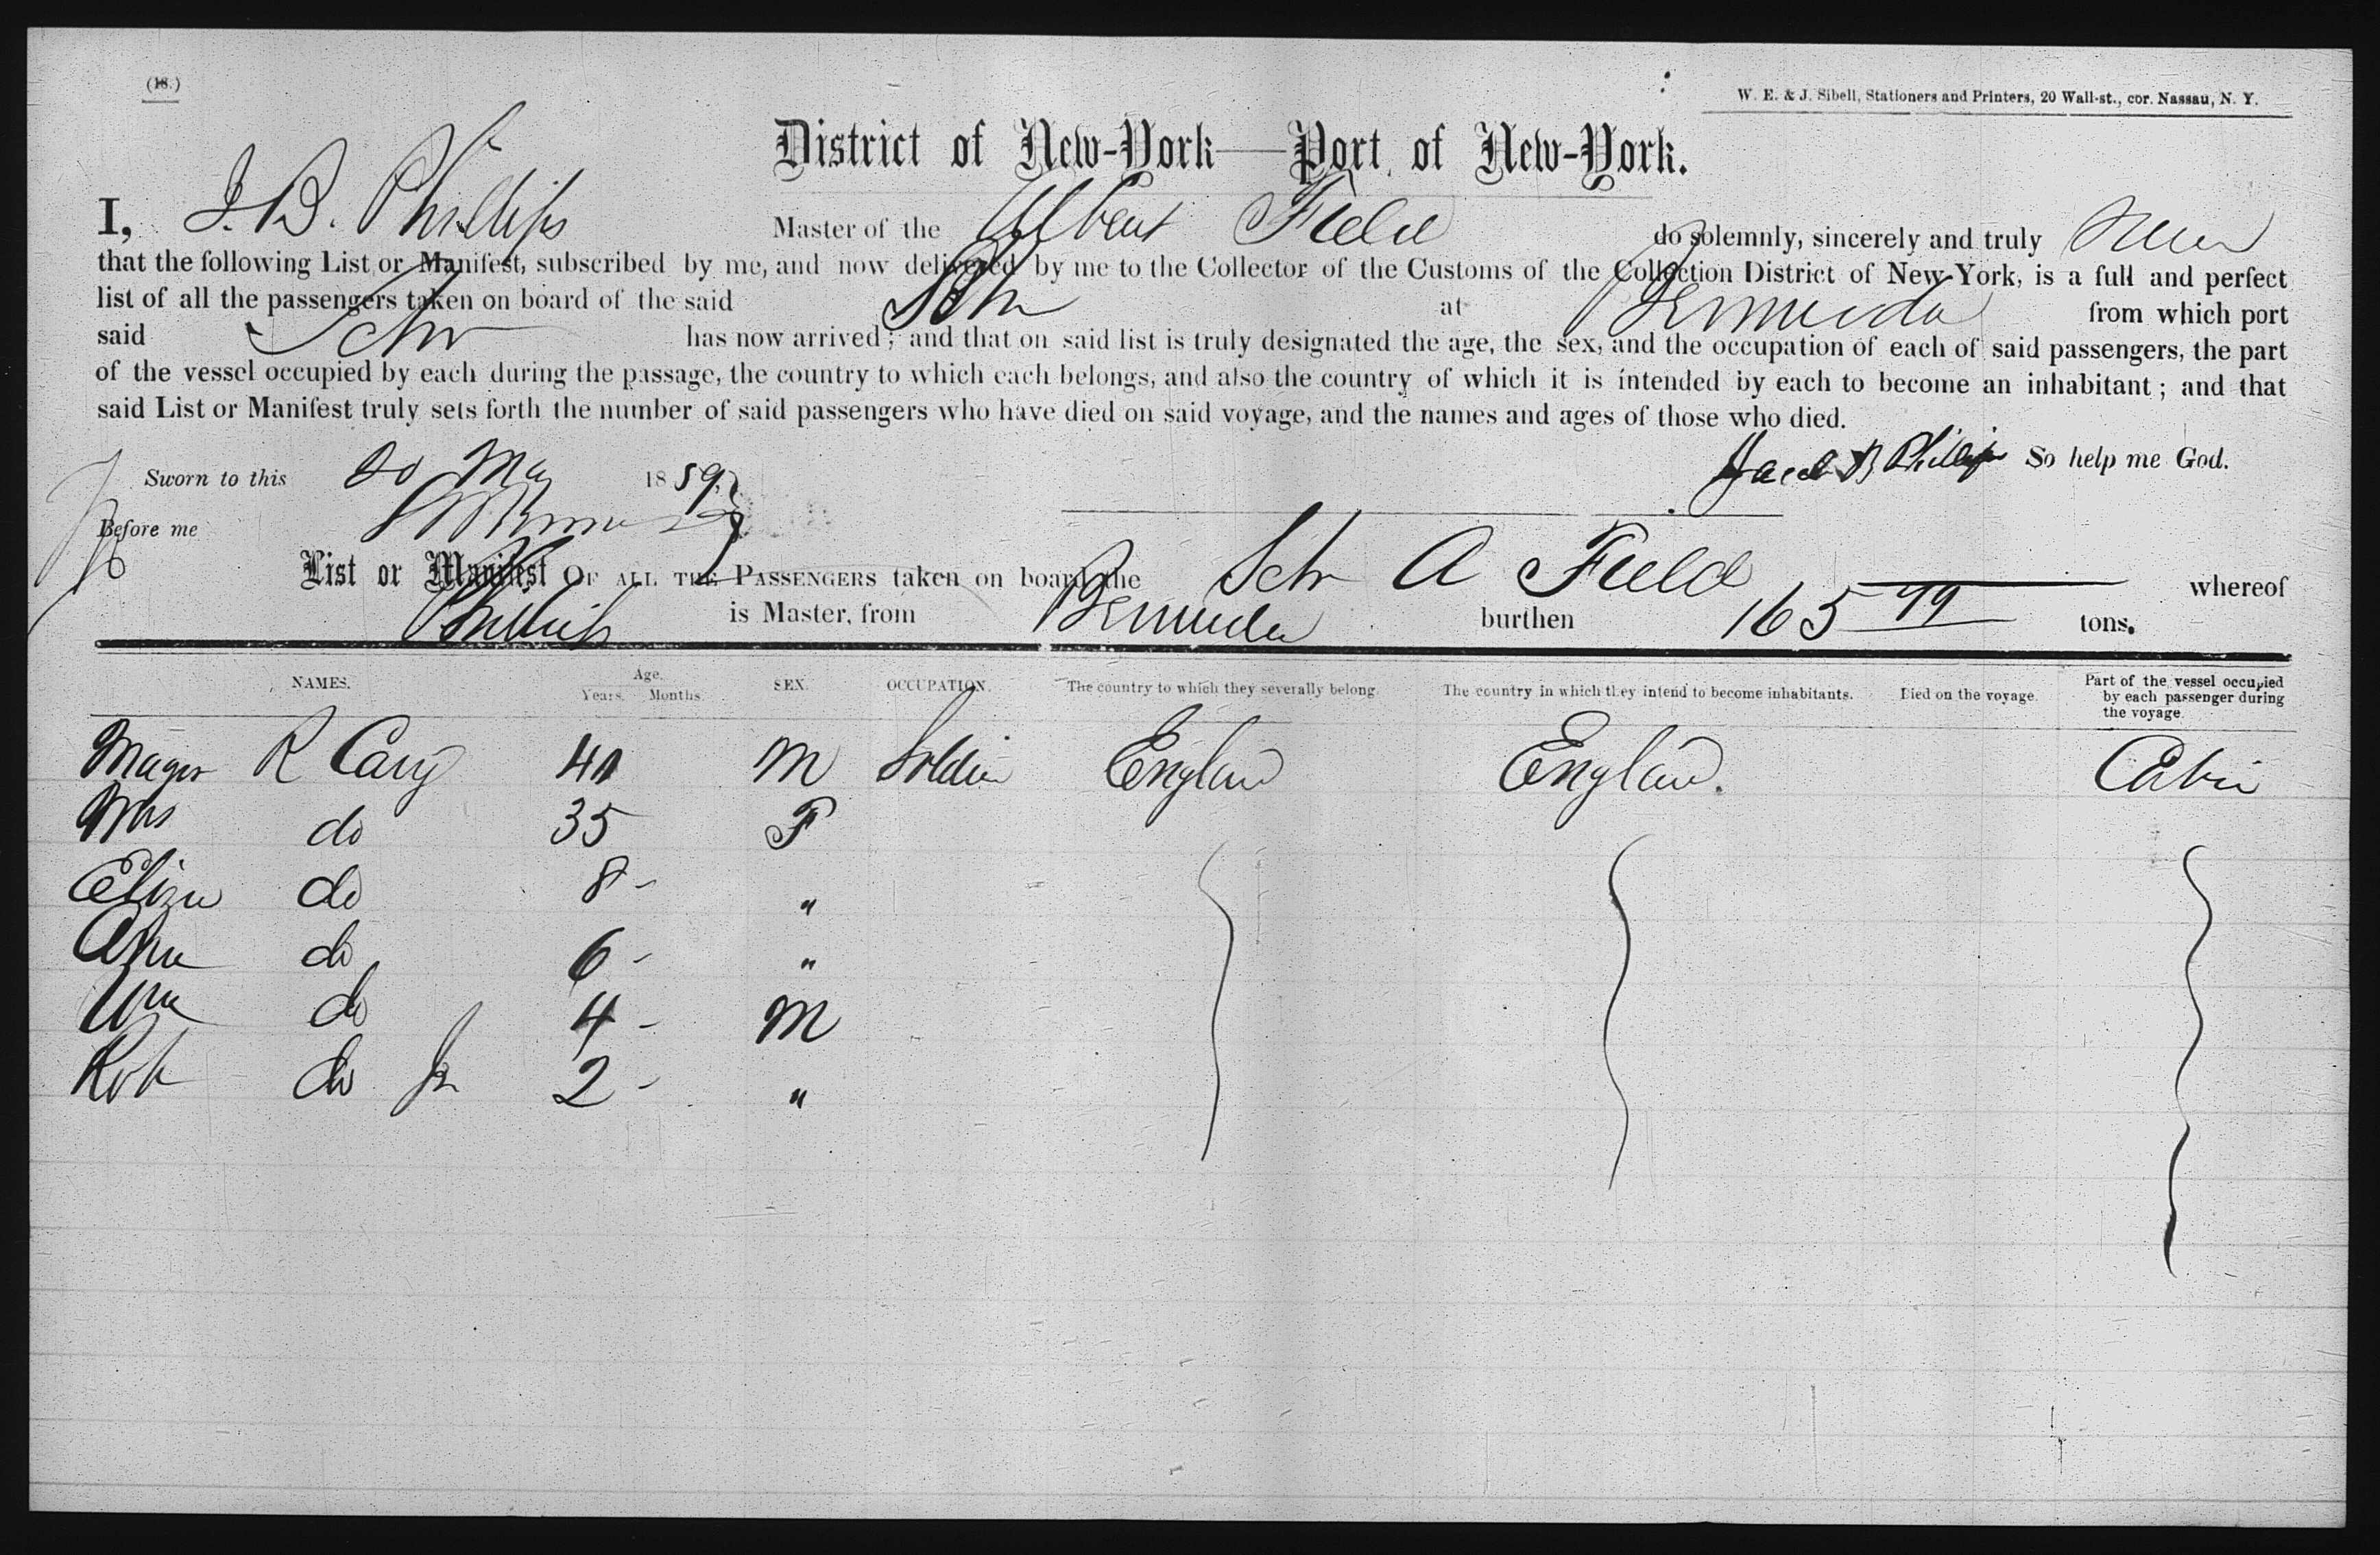 (18.)
W. E. & J. Sibell, Stationers and Printers, 20 Wall-st., cor. Nassau, N. Y.
District of New-York—Port of New-York.
I, J. B. Phillips Master of the Albert Field do solemnly, sincerely and truly
that the following List or Manifest, subscribed by me, and now delivered by me to the Collector of the Customs of the Collection District of New-York, is a full and perfect
list of all the passengers taken on board of the said Schr at Bermuda from which port
said Schr has now arrived; and that on said list is truly designated the age, the sex, and the occupation of each of said passengers, the part
of the vessel occupied by each during the passage, the country to which each belongs, and also the country of which it is intended by each to become an inhabitant; and that
said List or Manifest truly sets forth the number of said passengers who have died on said voyage, and the names and ages of those who died.
Jacob B Phillips So help me God.
Sworn to this 20 May 1859
Before me
List or Manifest OF ALL THE PASSENGERS taken on board the Schr A Field whereof
Phillips is Master, from Bermuda burthen 165 tons.
NAMES. Age. Years. Months. SEX. OCCUPATION. The country to which they severally belong. The country in which they intend to become inhabitants. Died on the voyage. Part of the vessel occupied by each passenger during the voyage.
R Cary M Soldier England England. Cabin
Mrs do 35 F
Eliza do 8 - "
do 6 - "
Wm do 4 - M
Rob do Jr 2 - "